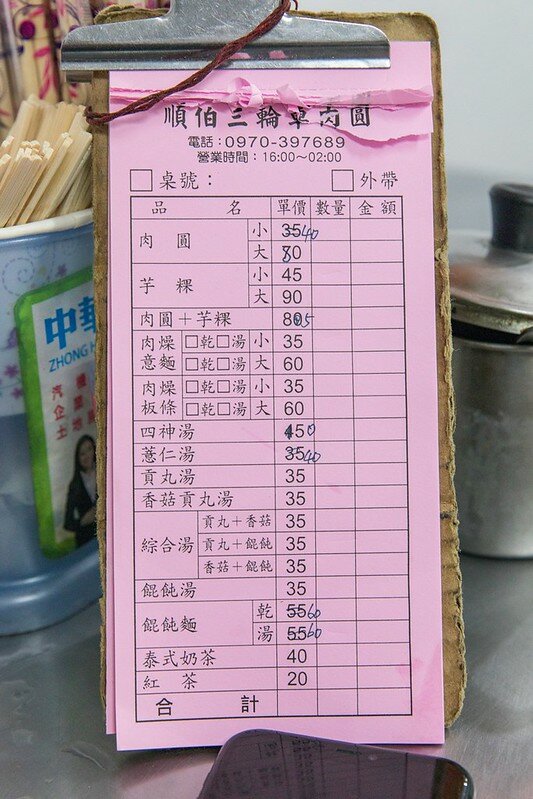 順伯三輪車肉圓
電話:0970-397689
營業時間:16:00~02:00
□桌號: □外帶
品名 單價 數量 金額
肉圓 小 35 40
大 70 8
芋粿 小 45
大 90
肉圓+芋粿 80 85
肉燥意麵 □乾□湯 小 35
大 60
肉燥板條 □乾□湯 小 35
大 60
四神湯 450
薏仁湯 35 40
貢丸湯 35
香菇貢丸湯 35
綜合湯 貢丸+香菇 35
貢丸+餛飩 35
香菇+餛飩 35
餛飩湯 35
餛飩麵 乾 55 60
湯 55 60
泰式奶茶 40
紅茶 20
合計
中華
ZHONG H
汽機
企業
土地